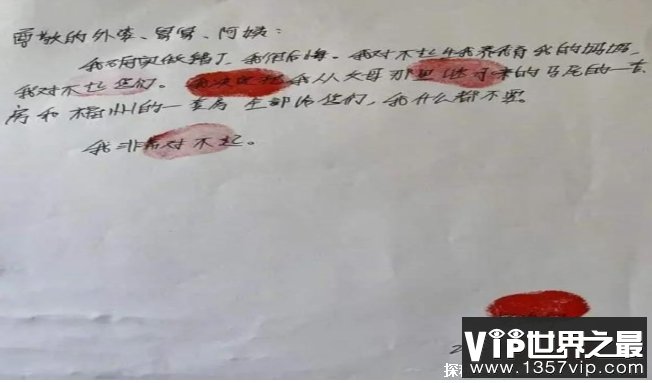 尊敬的外婆、舅舅、阿姨:
我不应该做错了,我很后悔。我对不起生我养育我的妈妈,
我对不起您们。我决定把我从父母那里 来的马尾的一套
房和福州的一套房全部给您们,我什么都不要。
我非常对不起。
2
探秘
VIP世界之最
www.1357vip.com